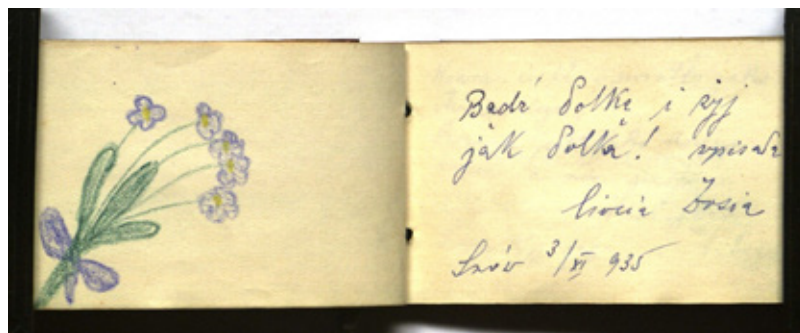 Bądź Polką i żyj
jak Polka! wpisała
Ciocia Zosia
Lwów 3/XI 935